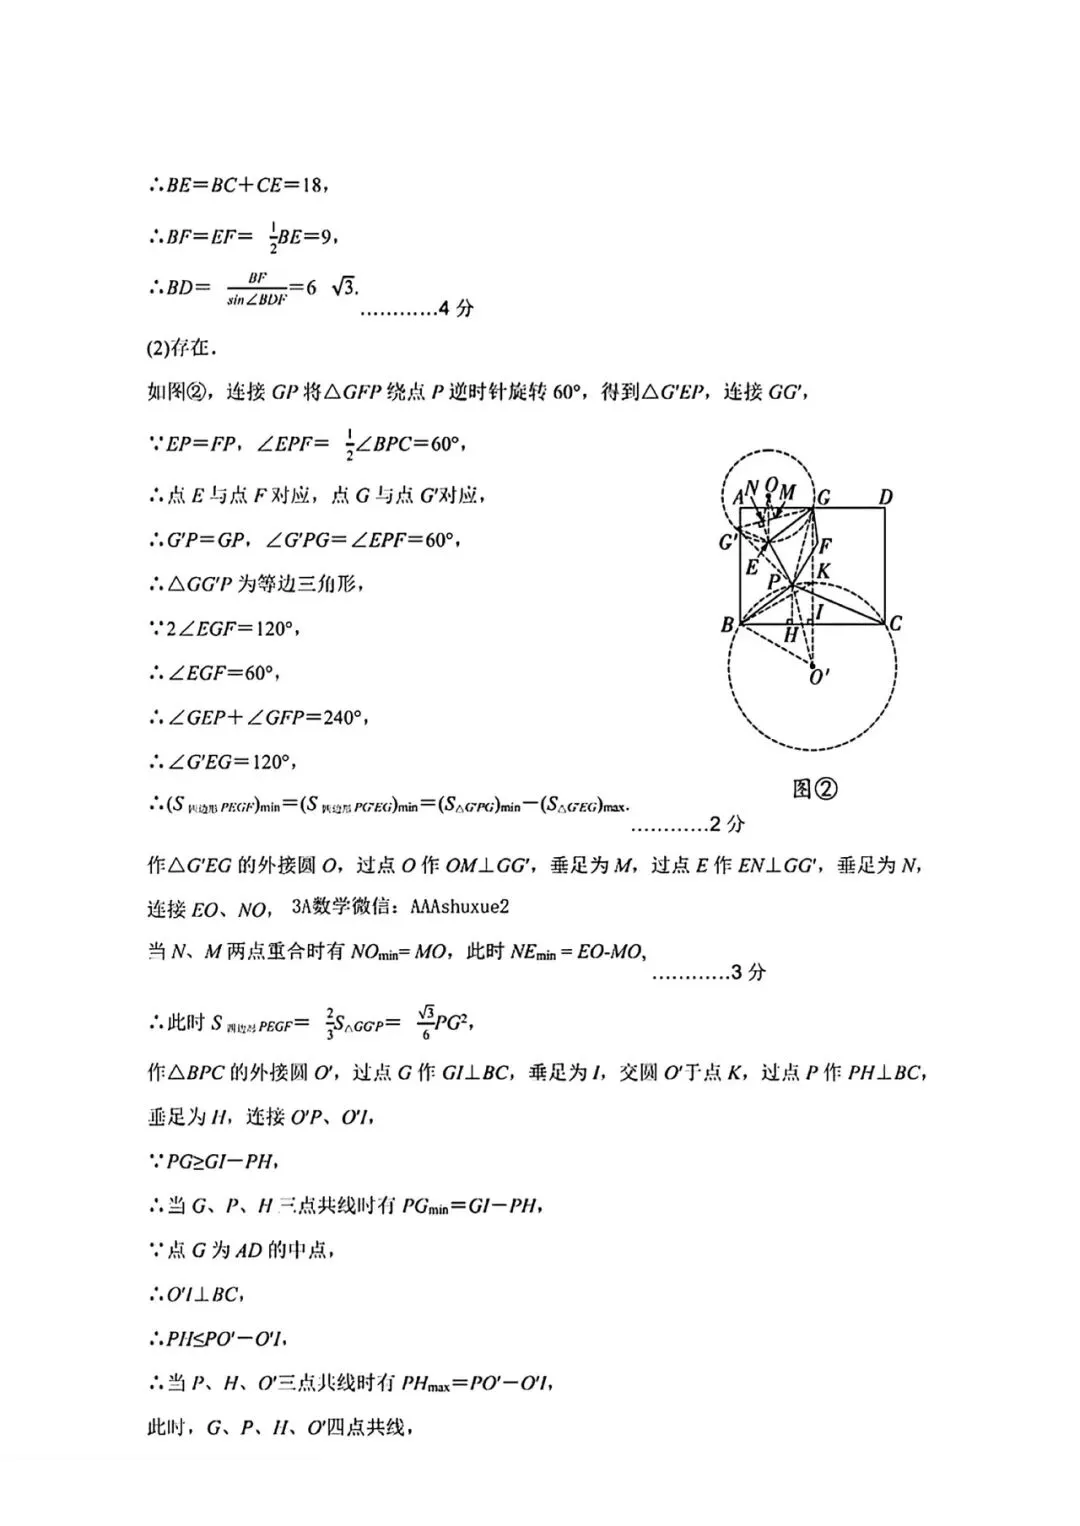 ∴BE＝BC＋CE＝18，
∴BF＝EF＝ 1/2BE＝9，
∴BD＝ BF/sin∠BDF＝6 √3.
…………4 分
(2)存在．
如图②，连接 GP 将△GFP 绕点 P 逆时针旋转 60°，得到△G′EP，连接 GG′，
∵EP＝FP，∠EPF＝ 1/2∠BPC＝60°，
∴点 E 与点 F 对应，点 G 与点 G′对应，
∴G′P＝GP，∠G′PG＝∠EPF＝60°，
∴△GG′P 为等边三角形，
∵2∠EGF＝120°，
∴∠EGF＝60°，
∴∠GEP＋∠GFP＝240°，
∴∠G′EG＝120°，
∴(S 四边形 PEGF)min＝(S 四边形 PG′EG)min＝(S△G′PG)min－(S△G′EG)max.
…………2 分
A N O M G D
G′ F
E
P K
B H I C
O′
图②
作△G′EG 的外接圆 O，过点 O 作 OM⊥GG′，垂足为 M，过点 E 作 EN⊥GG′，垂足为 N，
连接 EO、NO， 3A数学微信：AAAshuxue2
当 N、M 两点重合时有 NOmin= MO，此时 NEmin = EO-MO,
…………3 分
∴此时 S 四边形 PEGF＝ 2/3S△GG′P＝ √3/6PG²，
作△BPC 的外接圆 O′，过点 G 作 GI⊥BC，垂足为 I，交圆 O′于点 K，过点 P 作 PH⊥BC，
垂足为 H，连接 O′P、O′I，
∵PG≥GI－PH，
∴当 G、P、H 三点共线时有 PGmin＝GI－PH，
∵点 G 为 AD 的中点，
∴O′I⊥BC，
∴PH≤PO′－O′I，
∴当 P、H、O′三点共线时有 PHmax＝PO′－O′I，
此时，G、P、H、O′四点共线，